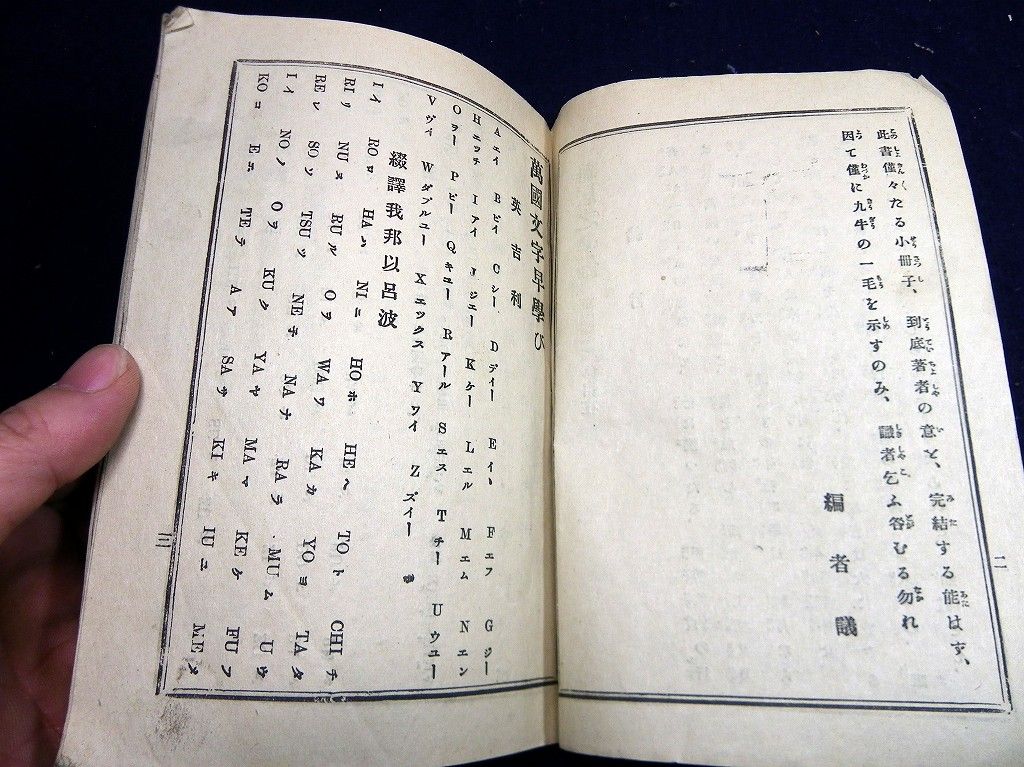 此書僅々たる小冊子、到底著者の意と、完結する能はず、
因て僅に九牛の一毛を示すのみ、識者乞ふ咎むる勿れ
編者識
二
萬國文字早學び
英吉利
Aエイ Bビイ Cシー Dデイー Eイヽ Fエフ Gジー
Hエッチ Iアイ Jジエー Kケー Lエル Mエム Nエン
Oヲー Pピー Qキユー Rアール Sエス Tチー Uウユー
Vヴイ Wダブルユー Xエックス Yワイ Zズイー
綴譯我邦以呂波
Iイ ROロ HAハ NIニ HOホ HEヘ TOト CHIチ
RIリ NUヌ RUル Oヲ WAワ KAカ YOヨ TAタ
REレ SOソ TSUツ NEチ NAナ RAラ MUム Uウ
Iイ NOノ Oヲ KUク YAヤ MAマ KEケ FUフ
KOコ Eエ TEテ Aア SAサ KIキ IUユ MEメ
三